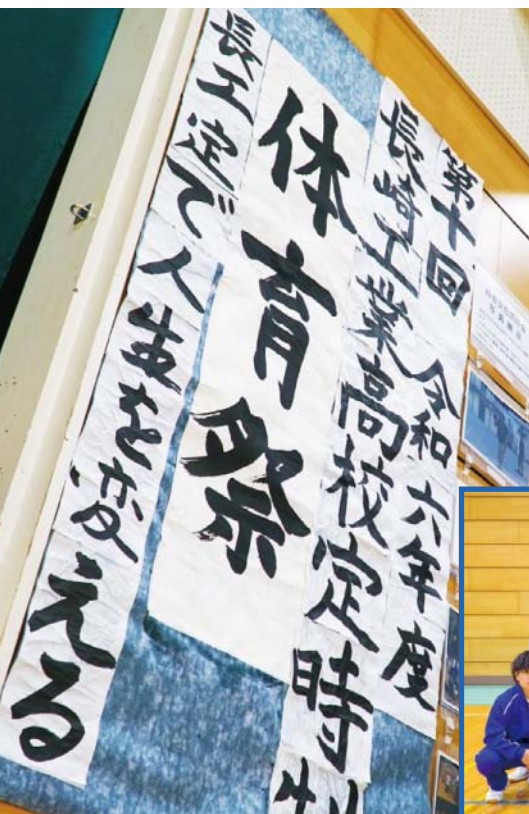 第十回 令和六年度
長崎工業高校定時制
体育祭
長工定で人生を変える